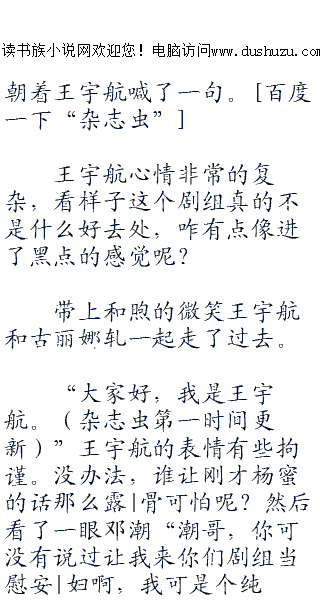 读书族小说网欢迎您！电脑访问www.dushuzu.com
朝着王宇航喊了一句。[百度
一下“杂志虫”]
王宇航心情非常的复
杂，看样子这个剧组真的不
是什么好去处，咋有点像进
了黑点的感觉呢？
带上和煦的微笑王宇航
和古丽娜轧一起走了过去。
“大家好，我是王宇
航。（杂志虫第一时间更
新）”王宇航的表情有些拘
谨。没办法，谁让刚才杨蜜
的话那么露|骨可怕呢？然后
看了一眼邓潮“潮哥，你可
没有说过让我来你们剧组当
慰安|如啊，我可是个纯